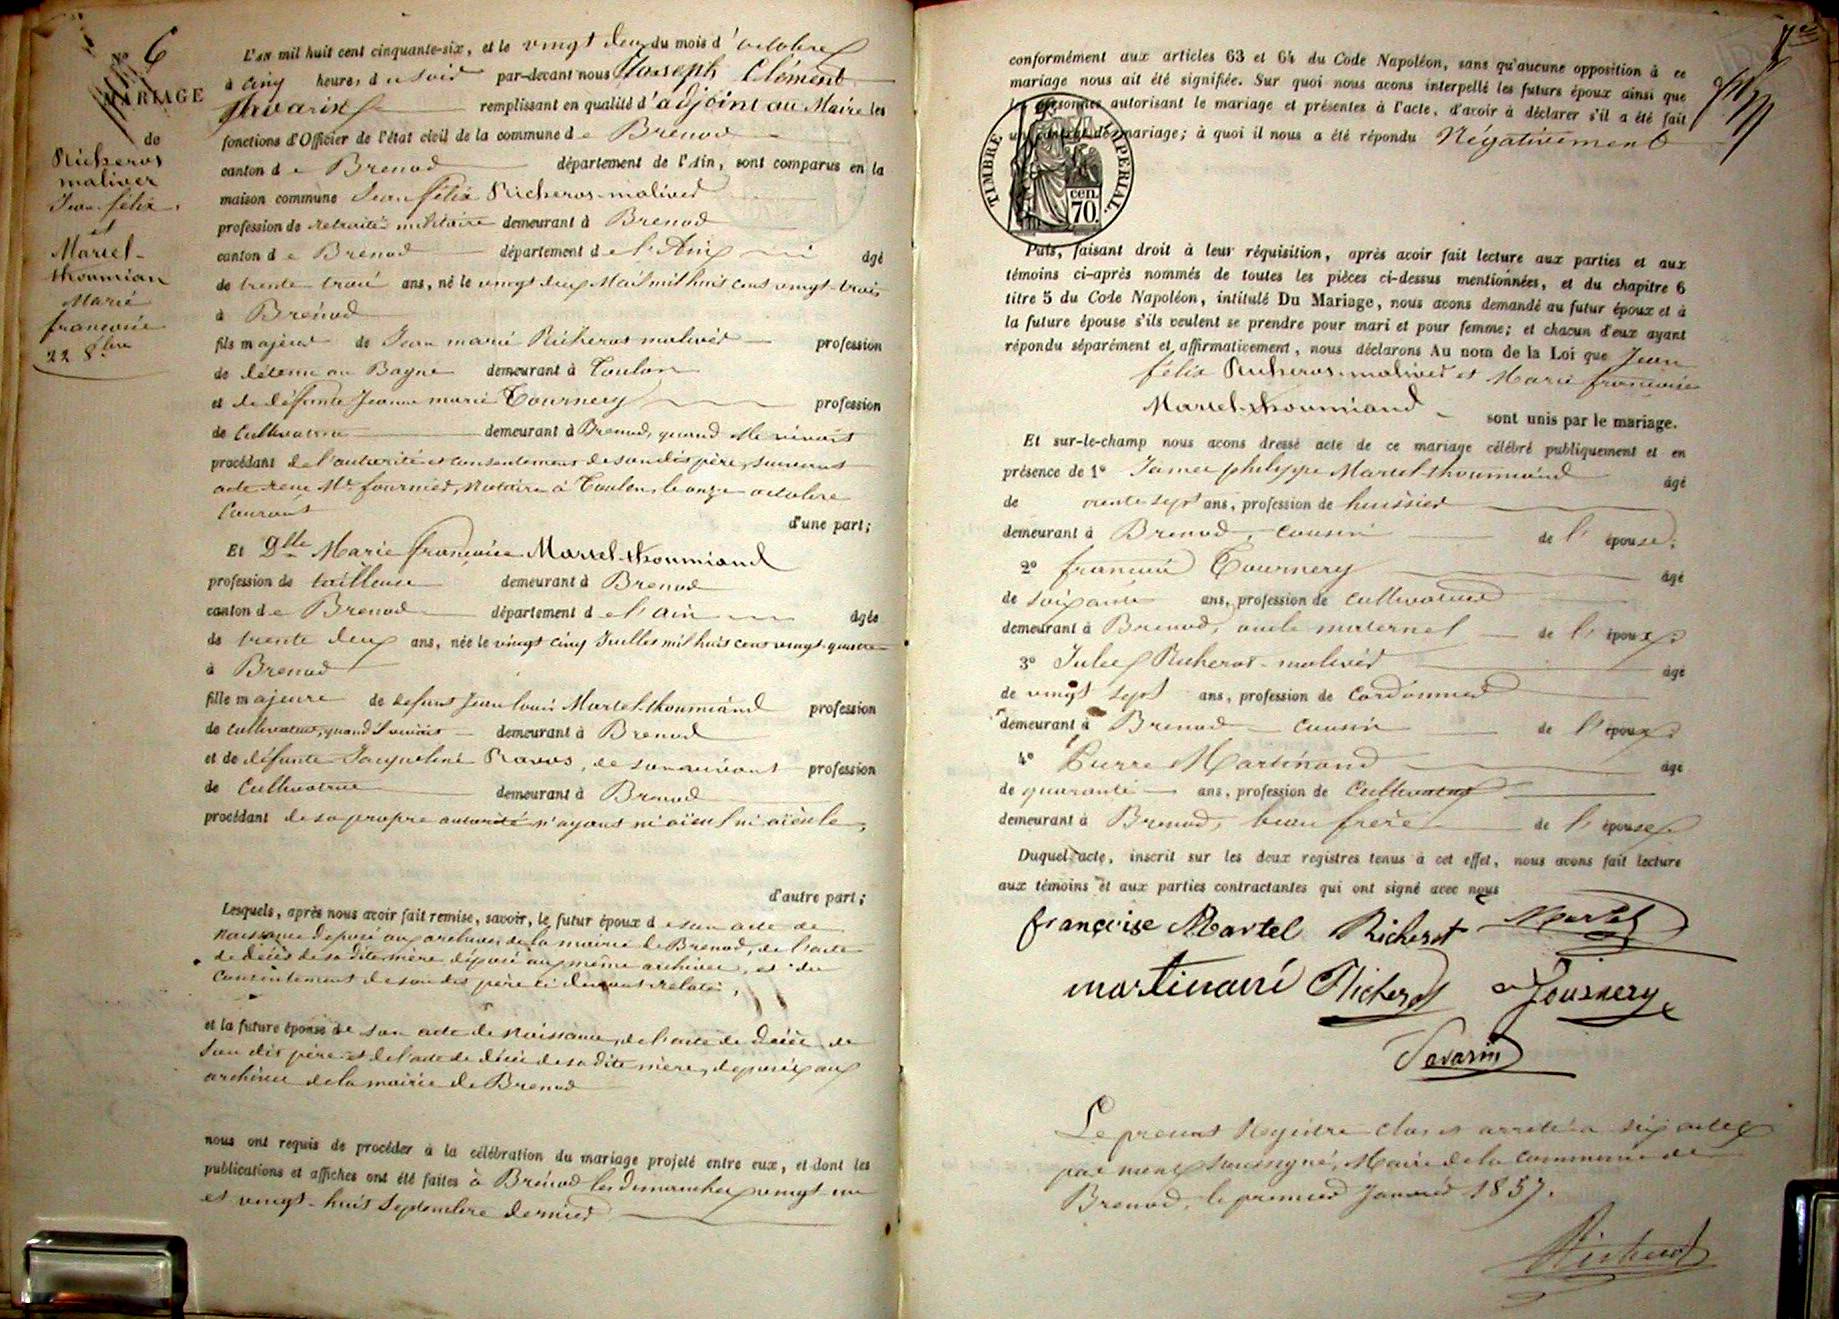 N° 6
MARIAGE
de
Richerot
maliver
Jean félix
et
Martel-
thoumian
Marie
françoise
22 8bre
L'an mil huit cent cinquante-six, et le vingt deux du mois d'octobre
à cinq heures du soir par-devant nous Joseph Clément
Savarin remplissant en qualité d'adjoint au Maire les
fonctions d'Officier de l'état civil de la commune de Brenod
canton de Brenod département de l'Ain, sont comparus en la
maison commune Jean félix Richerot-malivert
profession de retraité militaire demeurant à Brenod
canton de Brenod département de l'Ain âgé
de trente trois ans, né le vingt deux Mai mil huit cent vingt-trois
à Brénod
fils majeur de Jean marie Richerot malivert profession
de détenu au Bagne demeurant à Toulon
et de défunte Jeanne marie Tournery profession
de Cultivatrice demeurant à Brenod, quand elle vivait
procédant de l'autorité et consentement de son dit père, suivant
acte reçu Me fournier, Notaire à Toulon, le onze octobre
Courant
d'une part;
Et Dlle Marie françoise Martel-thoumiand
profession de tailleuse demeurant à Brenod
canton de Brenod département de l'ain âgée
de trente deux ans, née le vingt cinq Juillet mil huit cent vingt-quatre
à Brenod
fille majeure de defunt Jean louis Martel-thoumiand profession
de cultivateur, quand il vivait demeurant à Brenod
et de défunte Jacqueline Ravos, de son vivant profession
de Cultivatrice demeurant à Brenod
procédant de sa propre autorité n'ayant ni aïeul ni aïeule,
d'autre part;
Lesquels, après nous avoir fait remise, savoir, le futur époux de son acte de
naissance déposé aux archives de la mairie de Brenod, de l'acte
de décès de sa dite mère, déposé aux même archives, et du
Consentement de son dit père ci devant relaté,
et la future épouse de son acte de Naissance, de l'acte de décès de
son dit père et de l'acte de décès de sa dite mère, déposés aux
archives de la mairie de Brenod
nous ont requis de procéder à la célébration du mariage projeté entre eux, et dont les
publications et affiches ont été faites à Brénod les dimanches vingt-un
et vingt-huit Septembre dernier
conformément aux articles 63 et 64 du Code Napoléon, sans qu'aucune opposition à ce
mariage nous ait été signifiée. Sur quoi nous avons interpellé les futurs époux ainsi que
les personnes autorisant le mariage et présentes à l'acte, d'avoir à déclarer s'il a été fait
un contrat de mariage; à quoi il nous a été répondu Négativement
TIMBRE IMPÉRIAL.
cen.
70.
Puis, faisant droit à leur réquisition, après avoir fait lecture aux parties et aux
témoins ci-après nommés de toutes les pièces ci-dessus mentionnées, et du chapitre 6
titre 5 du Code Napoléon, intitulé Du Mariage, nous avons demandé au futur époux et à
la future épouse s'ils veulent se prendre pour mari et pour femme; et chacun d'eux ayant
répondu séparément et affirmativement, nous déclarons Au nom de la Loi que Jean
félix Richerot-malivert et Marie françoise
Martel-thoumiand sont unis par le mariage.
Et sur-le-champ nous avons dressé acte de ce mariage célébré publiquement et en
présence de 1° James philippe Martel-thoumiand âgé
de trente sept ans, profession de huissier
demeurant à Brenod, cousin de l'épouse;
2° Tournery âgé
de soixante ans, profession de cultivateur
demeurant à Brenod, oncle maternel de l'époux;
3° Jules Richerot-malivert âgé
de vingt sept ans, profession de Cordonnier
demeurant à Brenod cousin de l'époux;
4° Pierre Martinand âgé
de quarante ans, profession de Cultivateur
demeurant à Brenod, beau frère de l'épouse
Duquel acte, inscrit sur les deux registres tenus à cet effet, nous avons fait lecture
aux témoins et aux parties contractantes qui ont signé avec nous
françoise Martel Richerot Martel
martinand Richerot Tournery
Savarin
Le présent Registre clos et arrêté à six actes
par nous soussigné, Maire de la Commune de
Brenod, le premier Janvier 1857.
Richerot